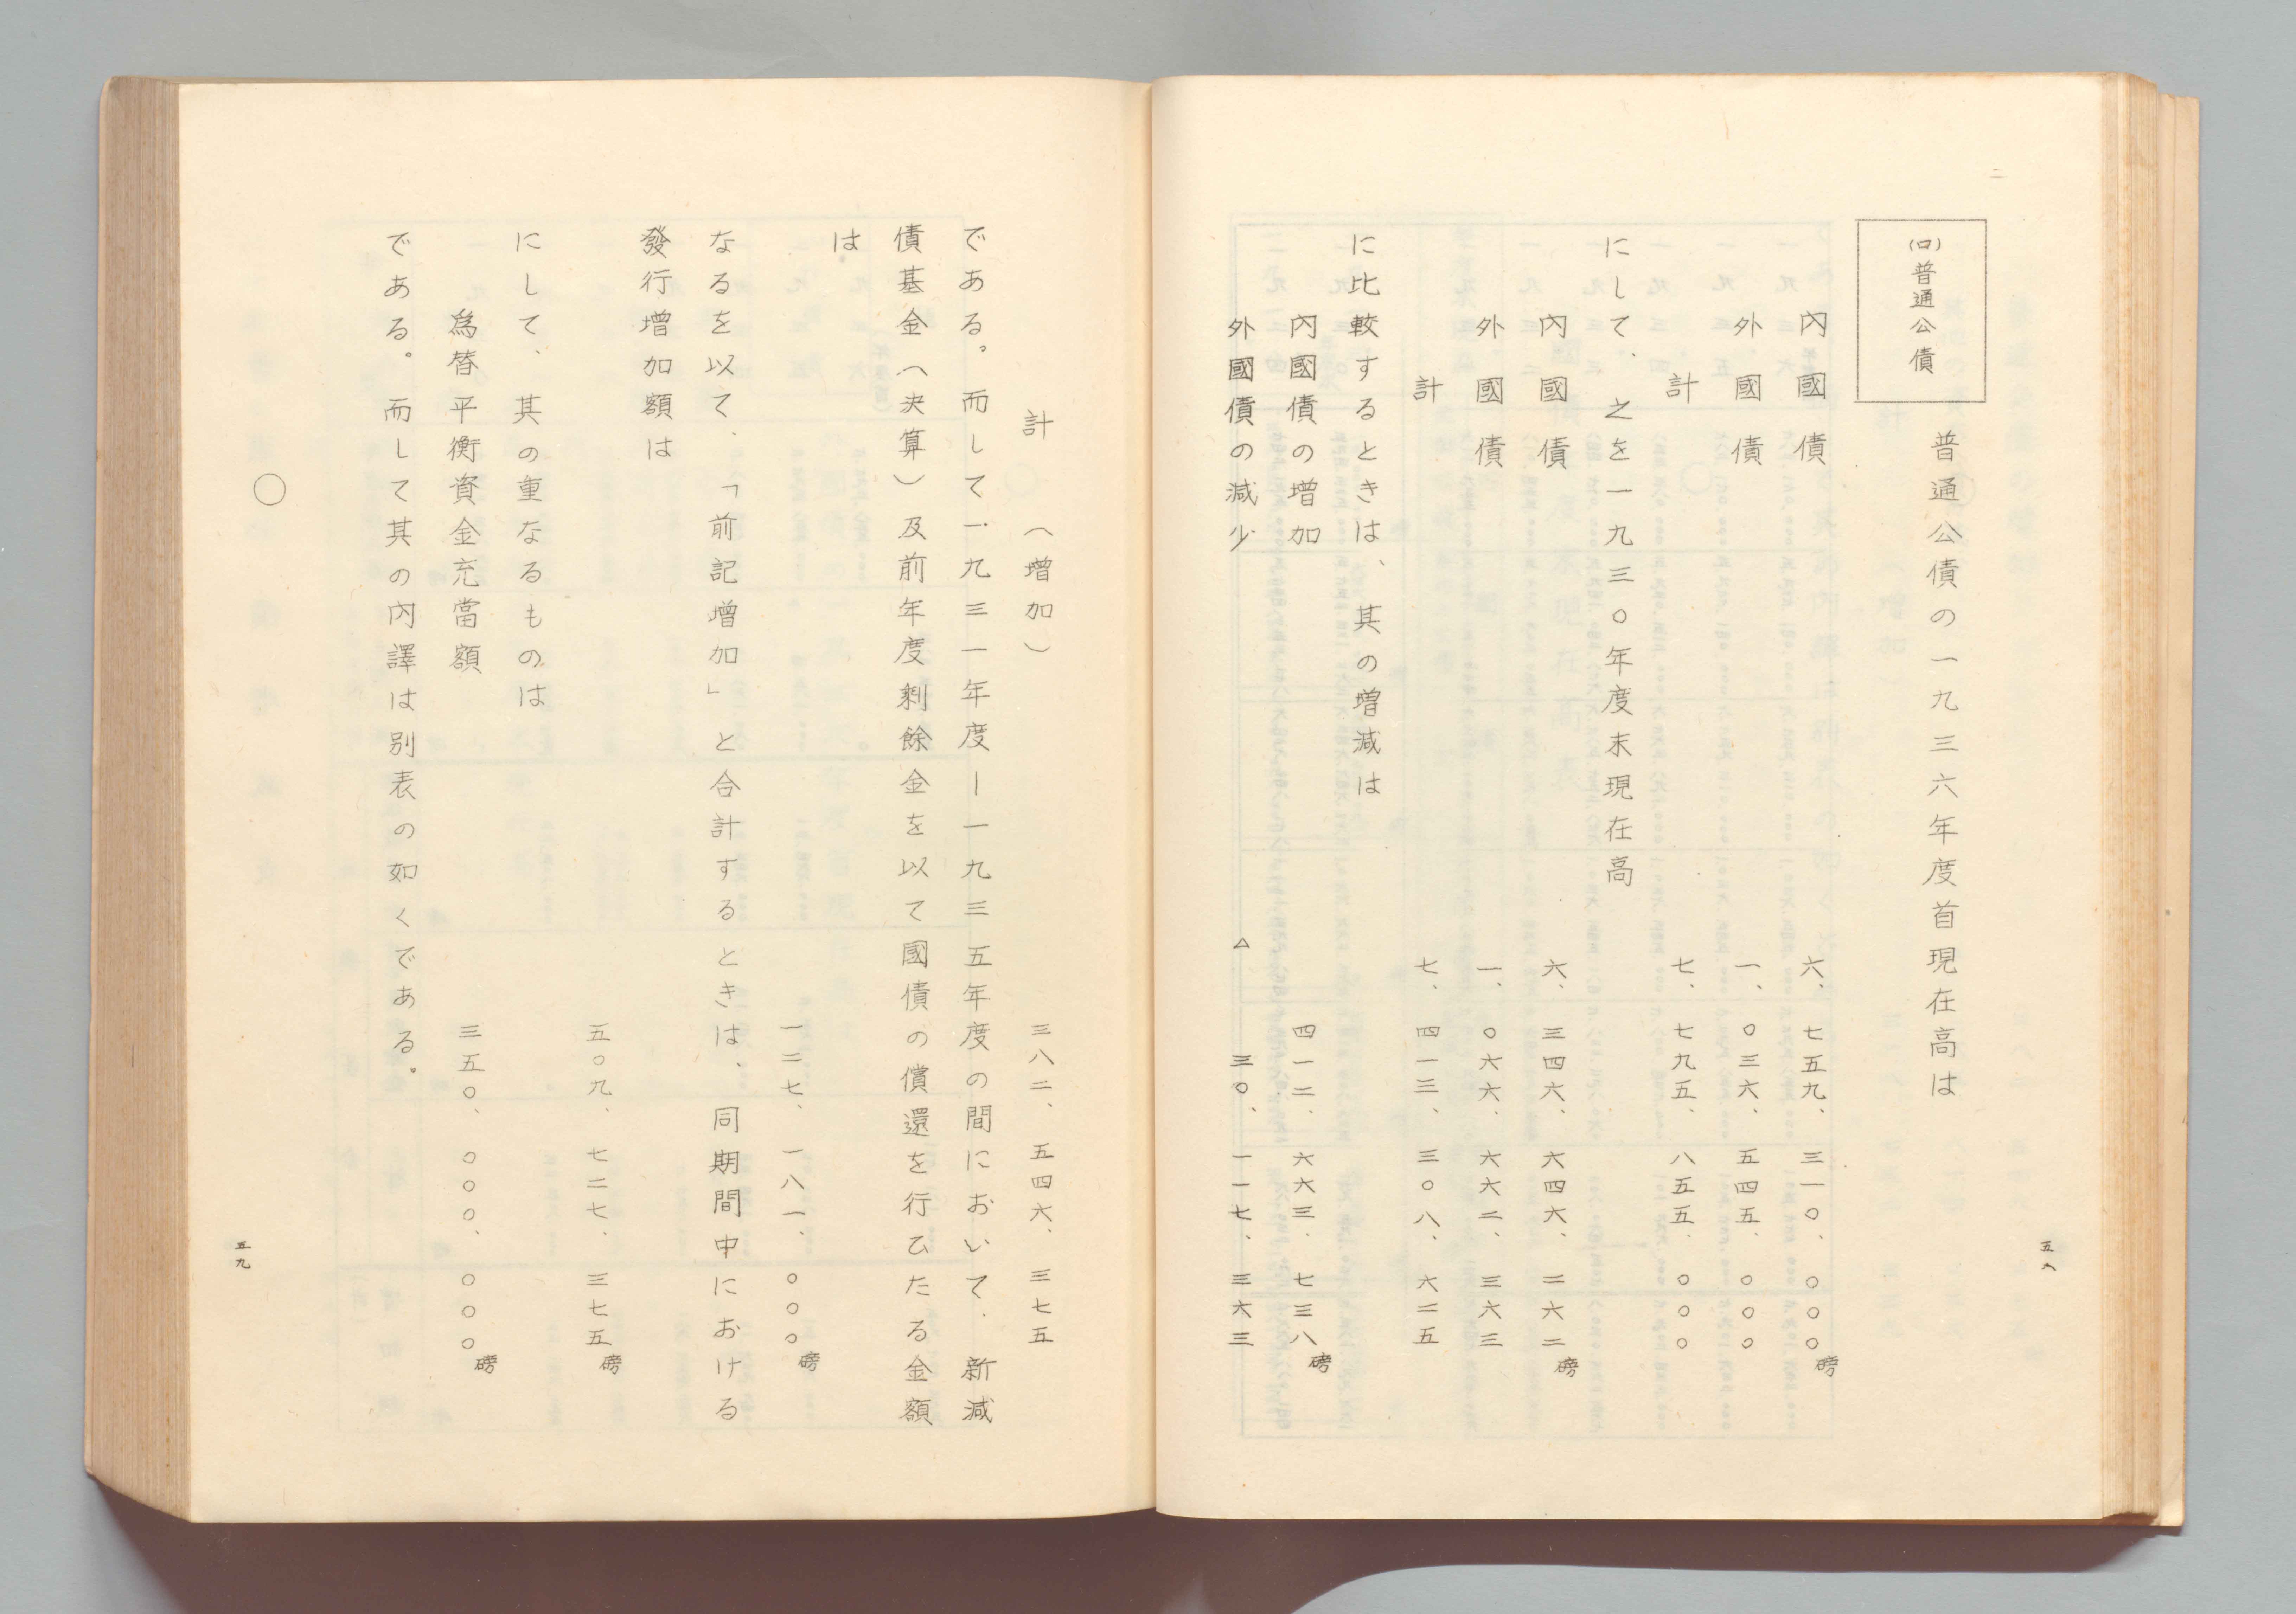 (ロ)普通公債
普通公債の一九三六年度首現在高は
內國債 六、七五九、三一〇、〇〇〇磅
外國債 一、〇三六、五四五、〇〇〇
計 七、七九五、八五五、〇〇〇
にして、之を一九三〇年度末現在高
內國債 六、三四六、六四六、二六二磅
外國債 一、〇六六、六六二、三六三
計 七、四一三、三〇八、六二五
に比較するときは、其の增減は
內國債の增加 四一二、六六三、七三八磅
外國債の減少 △三〇、一一七、三六三
五八
計(增加) 三八二、五四六、三七五
である。而して一九三一年度ー一九三五年度の間において、新減
債基金(決算)及前年度剩餘金を以て國債の償還を行ひたる金額
は、
一二七、一八一、〇〇〇磅
なるを以て、「前記增加」と合計するときは、同期間中における
發行增加額は
五〇九、七二七、三七五磅
にして、其の重なるものは
爲替平衡資金充當額 三五〇、〇〇〇、〇〇〇磅
である。而して其の內譯は別表の如くである。
〇
五九